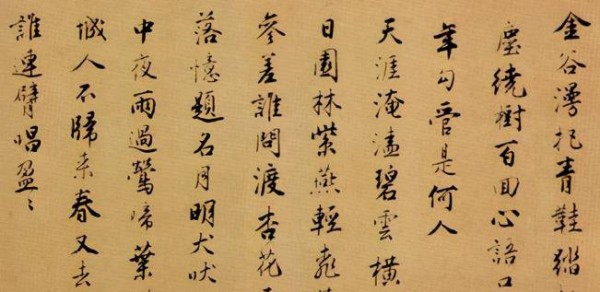 金谷漫把青鞋
塵繞樹百回心語口
年勾管是何人
天涯淹溘碧雲橫
日園林紫燕輕飛
參差誰問渡杏花
落憶題名月明犬吠
中夜雨過鶯啼葉
城人不歸来春又去
誰連臂唱盈〻